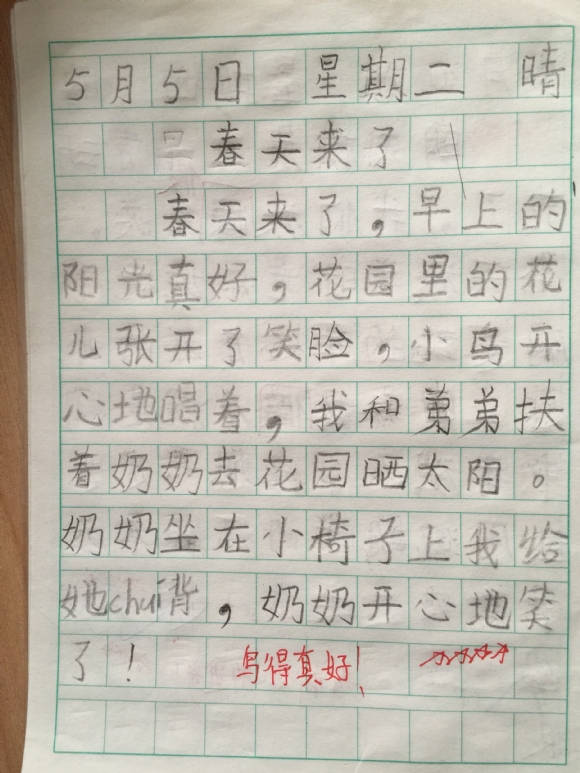 5月5日 星期二 晴
春天来了
春天来了,早上的
阳光真好,花园里的花
儿张开了笑脸,小鸟开
心地唱着,我和弟弟扶
着奶奶去花园晒太阳。
奶奶坐在小椅子上我给
她chuí背,奶奶开心地笑
了!
写得真好!